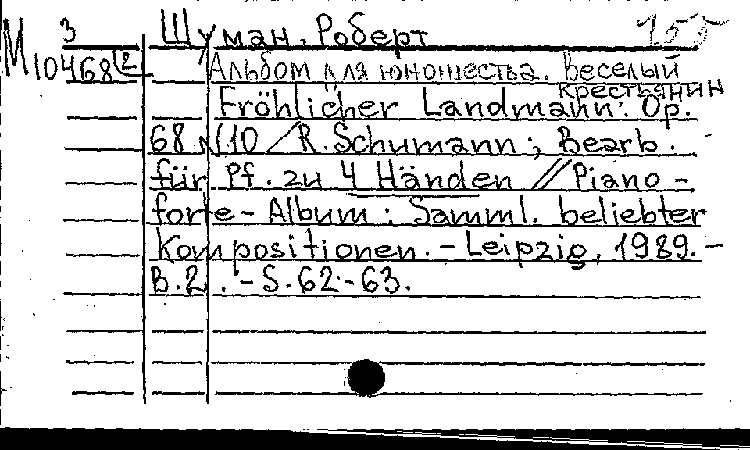 3 Шуман, Роберт 155
М 10468(2 Альбом для юношества. Веселый
крестьянин
Fröhlicher Landmann: Op.
68 N 10 / R. Schumann; Bearb.
für Pf. zu 4 Händen // Piano-
forte-Album: Samml. beliebter
Kompositionen. - Leipzig, 1989. -
B.2. - S. 62-63.